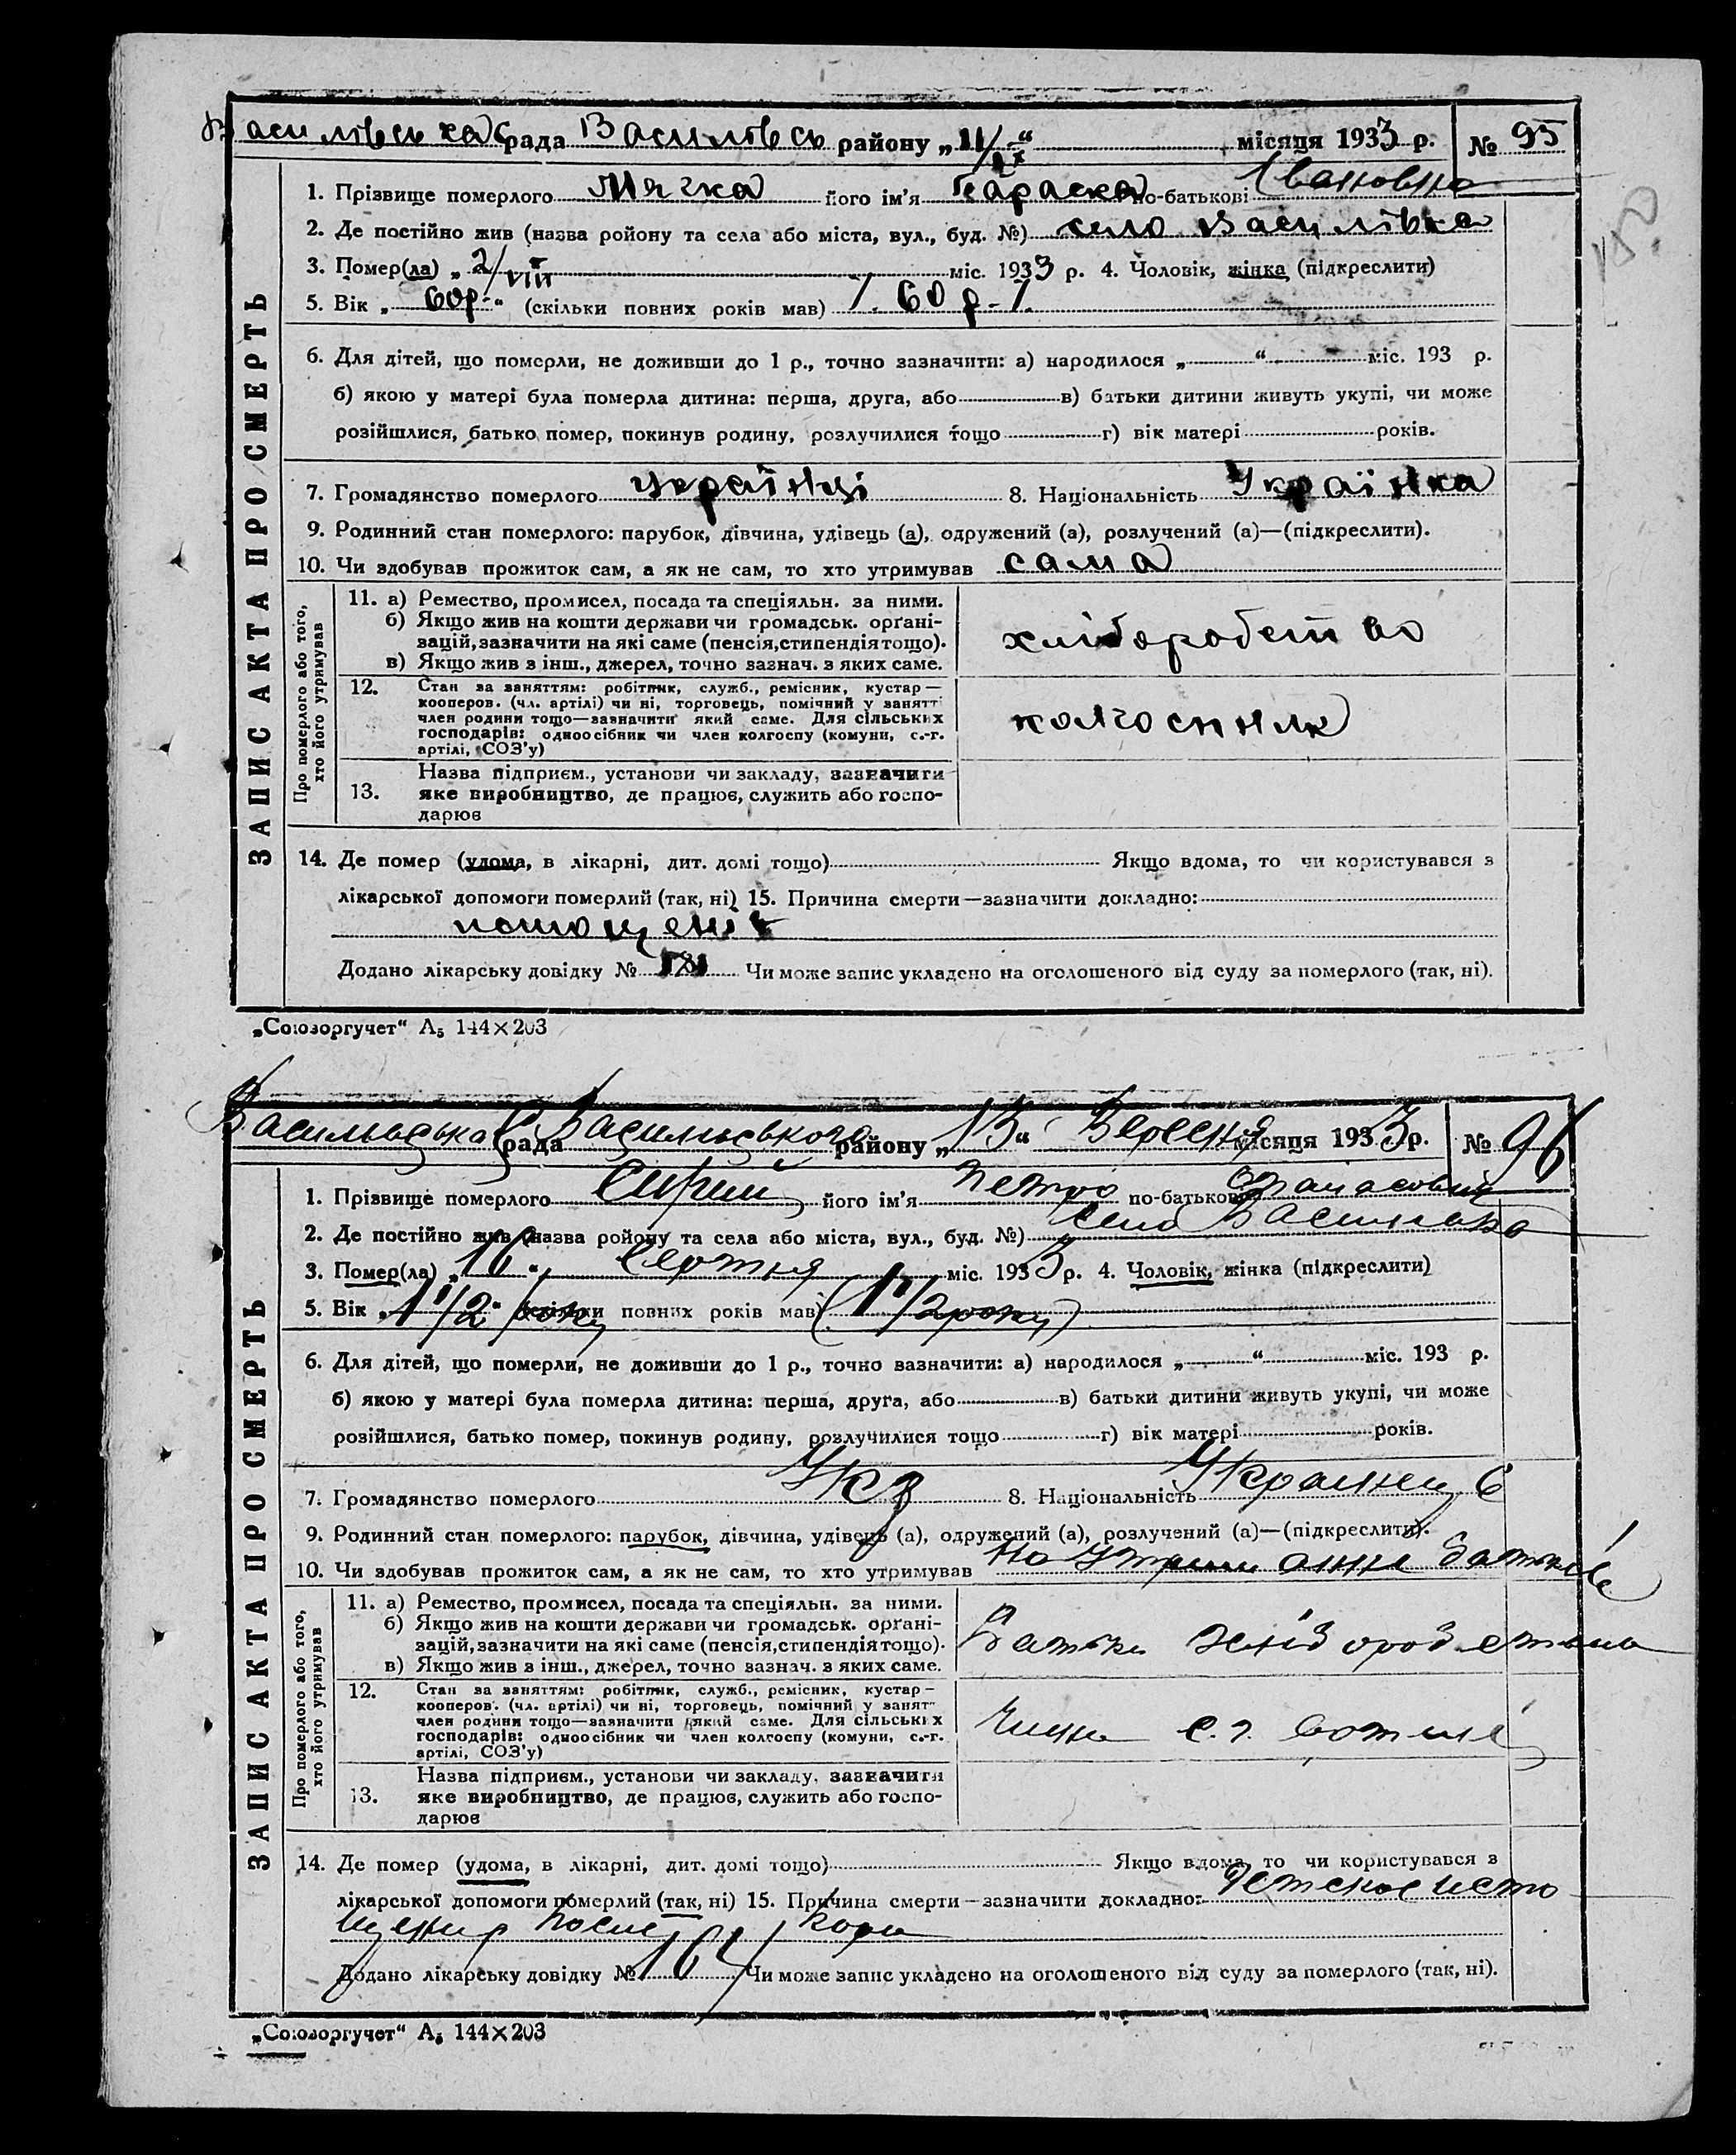 Василівська с рада Василівсь району „11/IX“ місяця 1933 р. № 95
1. Прізвище померлого Мячка його ім'я Параска по-батькові Івановна
2. Де постійно жив (назва ройону та села або міста, вул., буд. №) село Василівка
3. Помер(ла) „ 2/VIII міс. 1933 р. 4. Чоловік, жінка (підкреслити)
5. Вік „ 60р. “ (скільки повних років мав) /. 60 р. /.
6. Для дітей, що померли, не доживши до 1 р., точно зазначити: а) народилося „ “ міс. 193 р.
б) якою у матері була померла дитина: перша, друга, або в) батьки дитини живуть укупі, чи може
розійшлися, батько помер, покинув родину, розлучилися тощо г) вік матері років.
7. Громадянство померлого українці 8. Національність Українка
9. Родинний стан померлого: парубок, дівчина, удівець (а), одружений (а), розлучений (а)—(підкреслити).
10. Чи здобував прожиток сам, а як не сам, то хто утримував сама
ЗАПИС АКТА ПРО СМЕРТЬ
Про померлого або того,
хто його утримував
11. а) Ремество, промисел, посада та спеціяльн. за ними.
б) Якщо жив на кошти держави чи громадськ. орґані-
зацій, зазначити на які саме (пенсія, стипендія тощо).
в) Якщо жив з інш., джерел, точно зазнач. з яких саме.
хліборобство
12. Стан за заняттям: робітник, служб., ремісник, кустар—
кооперов. (чл. артілі) чи ні, торговець, помічний у занятт
член родини тощо—зазначити який саме. Для сільських
господарів: одноосібник чи член колгоспу (комуни, с.-г.
артілі, СОЗ'у)
колгоспник
Назва підприєм., установи чи закладу, зазначити
13. яке виробництво, де працює, служить або госпо-
дарює
14. Де помер (удома, в лікарні, дит. домі тощо) Якщо вдома, то чи користувався з
лікарської допомоги померлий (так, ні) 15. Причина смерти—зазначити докладно:
Додано лікарську довідку № Чи може запис укладено на оголошеного від суду за померлого (так, ні).
„Союзоргучет“ А₅ 144×203
Васильвська с рада Васильвського району „13“ Вересня місяця 1933 р. № 96
1. Прізвище померлого Сирий його ім'я Петро по-батькові Панасович
2. Де постійно жив (назва ройону та села або міста, вул., буд. №) село Васильвка
3. Помер(ла) „16“ Серпня міс. 1933 р. 4. Чоловік, жінка (підкреслити)
5. Вік „ 1 1/2 “ року (скільки повних років мав) (1 1/2 року)
6. Для дітей, що померли, не доживши до 1 р., точно вазначити: а) народилося „ “ міс. 193 р.
б) якою у матері була померла дитина: перша, друга, або в) батьки дитини живуть укупі, чи може
розійшлися, батько помер, покинув родину, розлучилися тощо г) вік матері років.
7. Громадянство померлого Укр 8. Національність
9. Родинний стан померлого: парубок, дівчина, удівець (а), одружений (а), розлучений (а)—(підкреслити).
10. Чи здобував прожиток сам, а як не сам, то хто утримував На утриманні батьків
ЗАПИС АКТА ПРО СМЕРТЬ
Про померлого або того,
хто його утримував
11. а) Ремество, промисел, посада та спеціяльн. за ними.
б) Якщо жив на кошти держави чи громадськ. орґані-
зацій, зазначити на які саме (пенсія, стипендія тощо).
в) Якщо жив з інш., джерел, точно зазнач. з яких саме.
Батьки
12. Стан за заняттям: робітник, служб., ремісник, кустар—
кооперов. (чл. артілі) чи ні, торговець, помічний у занят
член родини тощо—зазначити який саме. Для сільських
господарів: одноосібник чи член колгоспу (комуни, с.-г.
артілі, СОЗ'у)
Члени с.г. артілі
Назва підприєм., установи чи закладу, зазначити
13. яке виробництво, де працює, служить або госпо-
дарює
14. Де помер (удома, в лікарні, дит. домі тощо) Якщо вдома, то чи користувався з
лікарської допомоги померлий (так, ні) 15. Причина смерти—зазначити докладно: Детское исто
щение после кори
Додано лікарську довідку № 164 Чи може запис укладено на оголошеного від суду за померлого (так, ні).
„Союзоргучет“ А₅ 144×203